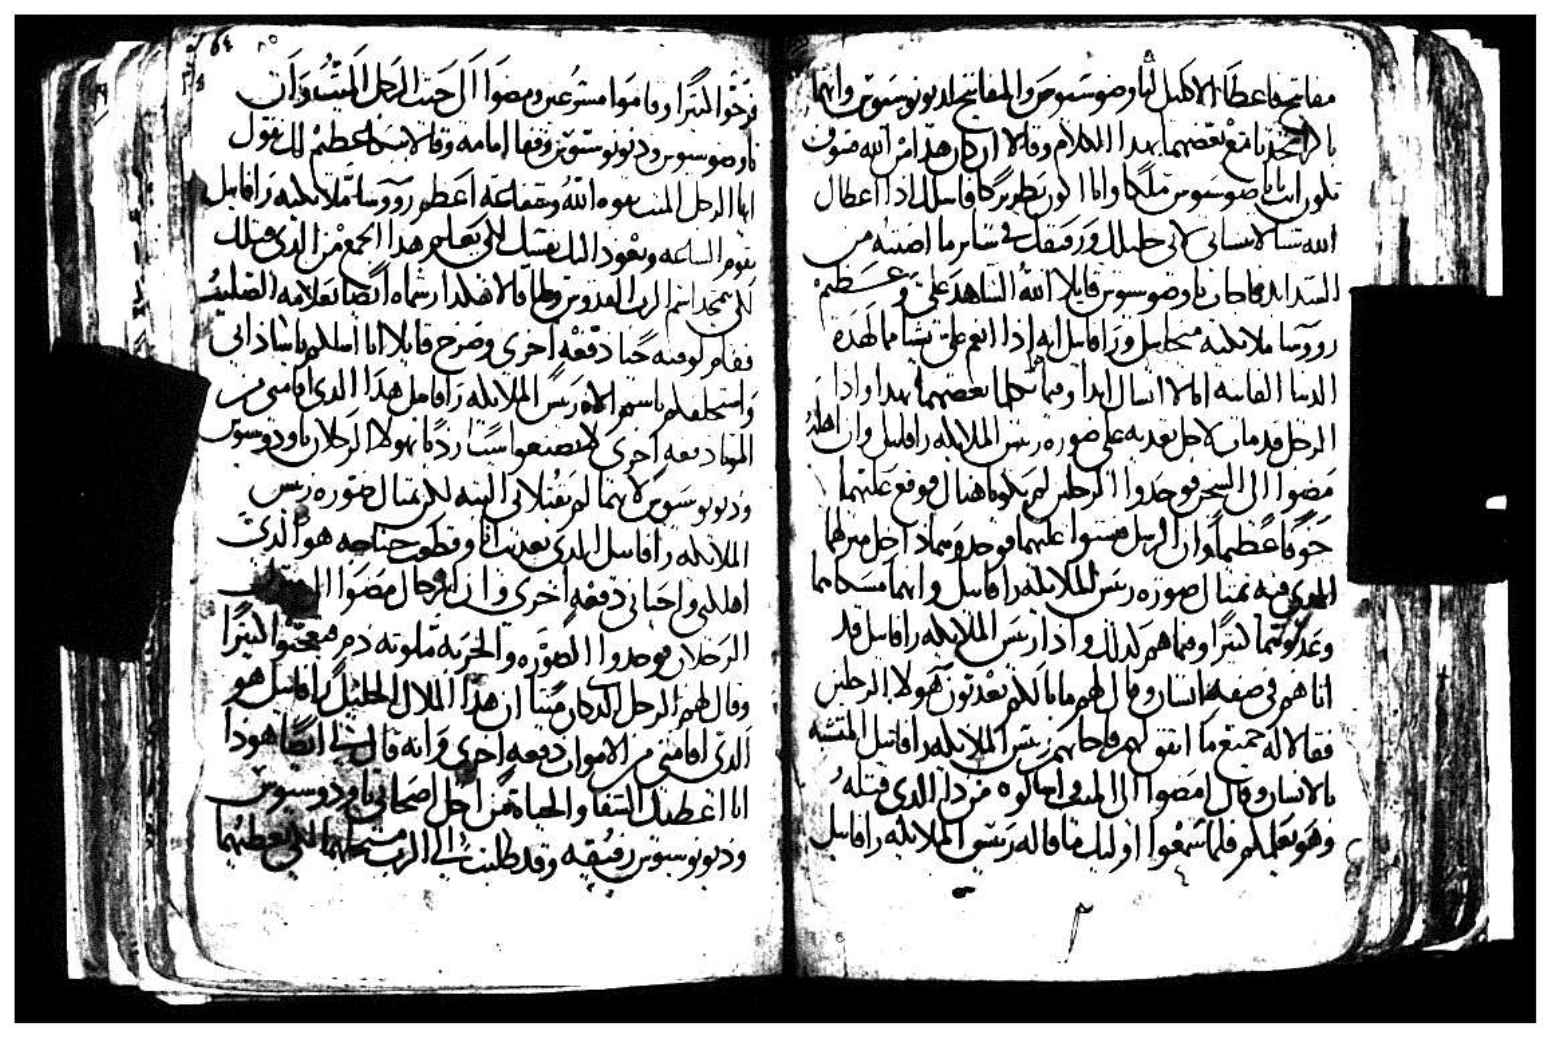 مفاتيح فاعطا الاكليل لناوضوسيوس والمفاتيح لديونوسيوس وانهما
بهدا الكلام وقالا ان كان هدا من الله سوف
تكون انت ياناوضوسيوس ملكا وانا اكون بطريركا فاسلك ادا اعطاك
الله لا تنساني لاني خليلك ورفيقك في سائر ما اصبته من
فاجاب ناوضوسيوس قايلا الله الشاهد علي وعظيم
رووسا ملايكته ميخاييل ورافاييل انه إدا انعم علي بشا مما لهده
الدنيا الفانيه انا لا انساك ابدا وفيما تكلما بعضهما بهدا وادا
الرجل قد مات لاجل تعديه على صوره ريس الملايكه رافاييل وان اهله
مضوا الى السجن فوجدوا الرجلين لم يكونا هناك فوقع عليهما
خوفا عظيما وان الرسل فتشوا عليهما فوجدوهما داخل منزلهما
الدي فيه تمثال صوره ريس الملايكه رافاييل وانهما مسكاهما
وعدبوهما كتيرا وفيما هم كدلك وادا ريس الملايكه رافاييل قد
اتاهم في صفة انسان وقال لهم ما بالكم تعدبون هولا الرجلين
فقالا له جميع ما اتفق لهم فاجابهم ريس الملايكه رافاييل المتشبه
بالانسان وقال امضوا الى الميت واسالوه من دا الدي قتله
وهو يعلمكم فلما سمعوا اوليك ما قاله ريس الملايكه رافاييل
٦٤
فرحوا كتيرا وقاموا مسرعين ومضوا الى حيت الرجل الميت وان
ناوضوسيوس وديونوسيوس وقفا امامه وقالا بصوت عظيم لك نقول
ايها الرجل الميت بقوه الله وشفاعة اعظم رووسا ملايكته رافاييل
تقوم الساعه وتعود اليك نفسك لكي يعلم هدا الجمع من الدي قتلك
لكي يتمجد اسم الرب القدوس ولما قالا هكدا رشماه ايضا بعلامة الصليب
فقام لوقته حيا دفعه اخرى وصرخ قايلا انا اسلكم ياساداتي
واستحلفكم باسم الاه ريس الملايكه رافاييل هدا الدي اقامني من
الموت دفعه اخرى لا تصنعوا شيا رديا بهولا الرجلان ناودوسيوس
وديونوسيوس لانهما لم يقتلاني البته لكن تمثال صوره ريس
الملايكه رافاييل الدي تعديت انا وقطعت جناحه هو الدي
اهلكني واحياني دفعه اخرى وان الرجال مضوا الى
الرجلان فوجدوا الصوره والحربه ملوته دم فتعجبوا كتيرا
وقال لهم الرجل الدي كان ميتا ان هدا الملاك الجليل رافاييل هو
الدي اقامني من الاموات دفعه اخرى وانه قال لي ايضا هودا
انا اعطيتك الشفا والحياة من اجل اصحابي ناودوسيوس
وديونوسيوس رفيقه وقد طلبت الى الرب من اجلهما لكي يعطيهما